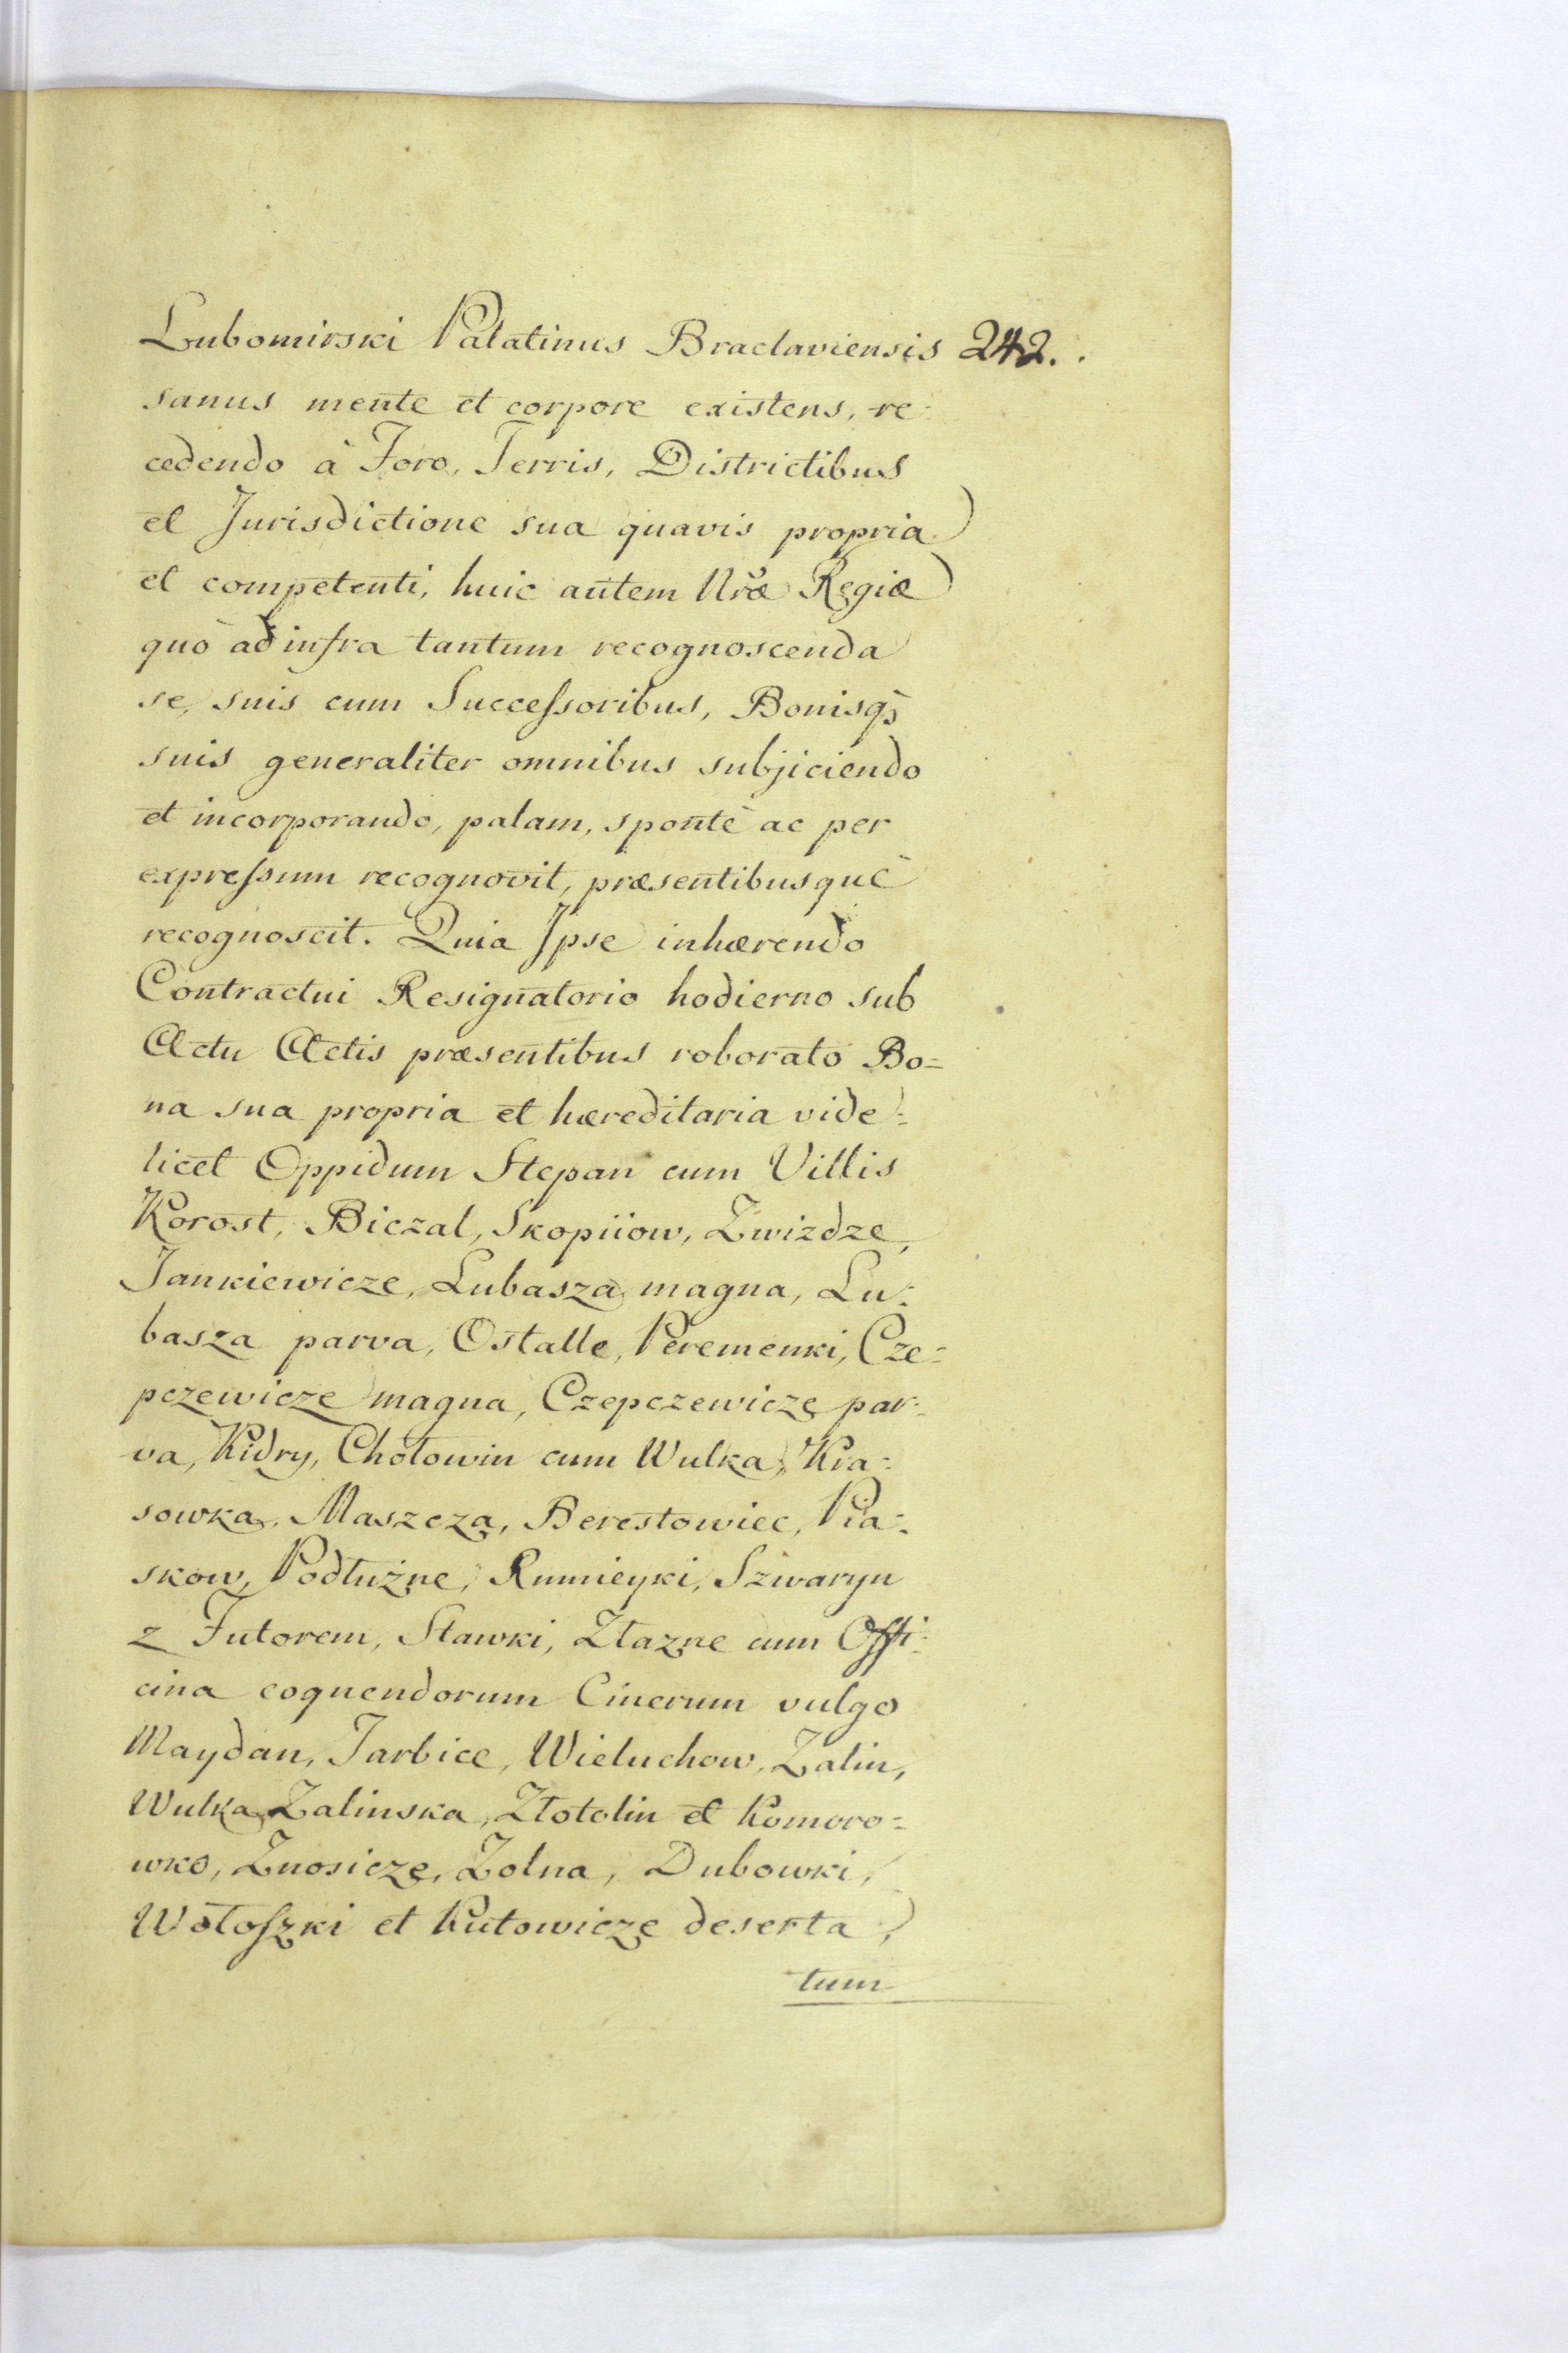 Lubomirski Palatinus Braclaviensis 242.
sanus mente et corpore existens, re-
cedendo à Foro, Terris, Districtibus
et Jurisdictione sua quavis propria
et competenti, huic autem Nræ Regiæ
quò ad infra tantum recognoscenda
se, suis cum Successoribus, Bonisq3
suis generaliter omnibus subjiciendo
et incorporando, palam, spontè ac per
expressum recognovit, præsentibusquè
recognoscit. Quia Ipse inhærendo
Contractui Resignatorio hodierno sub
Actu Actis præsentibus roborato Bo=
na sua propria et hæreditaria vide=
licet Oppidum Stepan cum Villis
Korost, Biczal, Skopiiow, Zwizdze,
Jankiewicze, Lubasza magna, Lu=
basza parva, Ostalle, Peremenki, Cze=
pczewicze magna, Czepczewicze par=
va, Kidry, Chołowin cum Wulka, Kra=
sowka, Maszcza, Berestowiec, Pia=
skow, Podłużne, Rumieyki, Szwaryn
z Futorem, Stawki, Złazne cum Offi=
cina coquendorum Cinerum vulgo
Maydan, Jarbice, Wieluchow, Zalin,
Wulka Zalinska, Złotolin et Komoro=
wko, Znosicze, Zolna, Dubowki,
Wołoszki et Kutowicze deserta,
tum